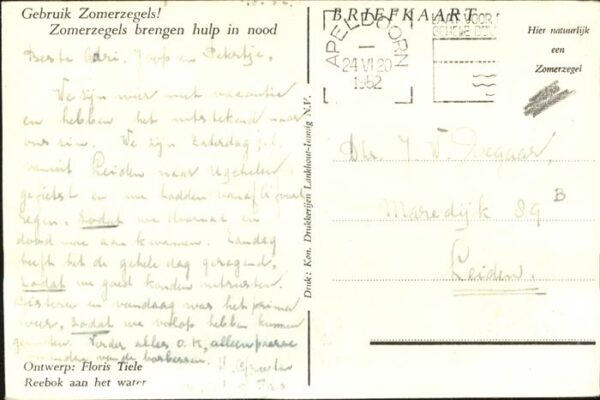 Gebruik Zomerzegels!
Zomerzegels brengen hulp in nood
Beste Adri, Joop en
We zijn weer met vacantie
en hebben het uitstekend naar
ons zin. We zijn Zaterdag j.l.
vanuit Leiden naar Ugchelen
gefietst en we hadden vanaf
regen. Zodat we doornat en
doodmoe aankwamen. Zondag
heeft het de gehele dag geregend,
zodat we goed konden uitrusten.
Gisteren en vandaag was het prima
weer, zodat we volop hebben kunnen
genieten. Verder alles O.K., alleen
van de
Ontwerp: Floris Tiele
Reebok aan het water
Druk: Kon. Drukkerijen Lankhout-Immig N.V.
BRIEFKAART
APELDOORN
24 VI 20
1952
Hier natuurlijk
een
Zomerzegel
Dhr. J. W.
Maredijk 89 B
Leiden.